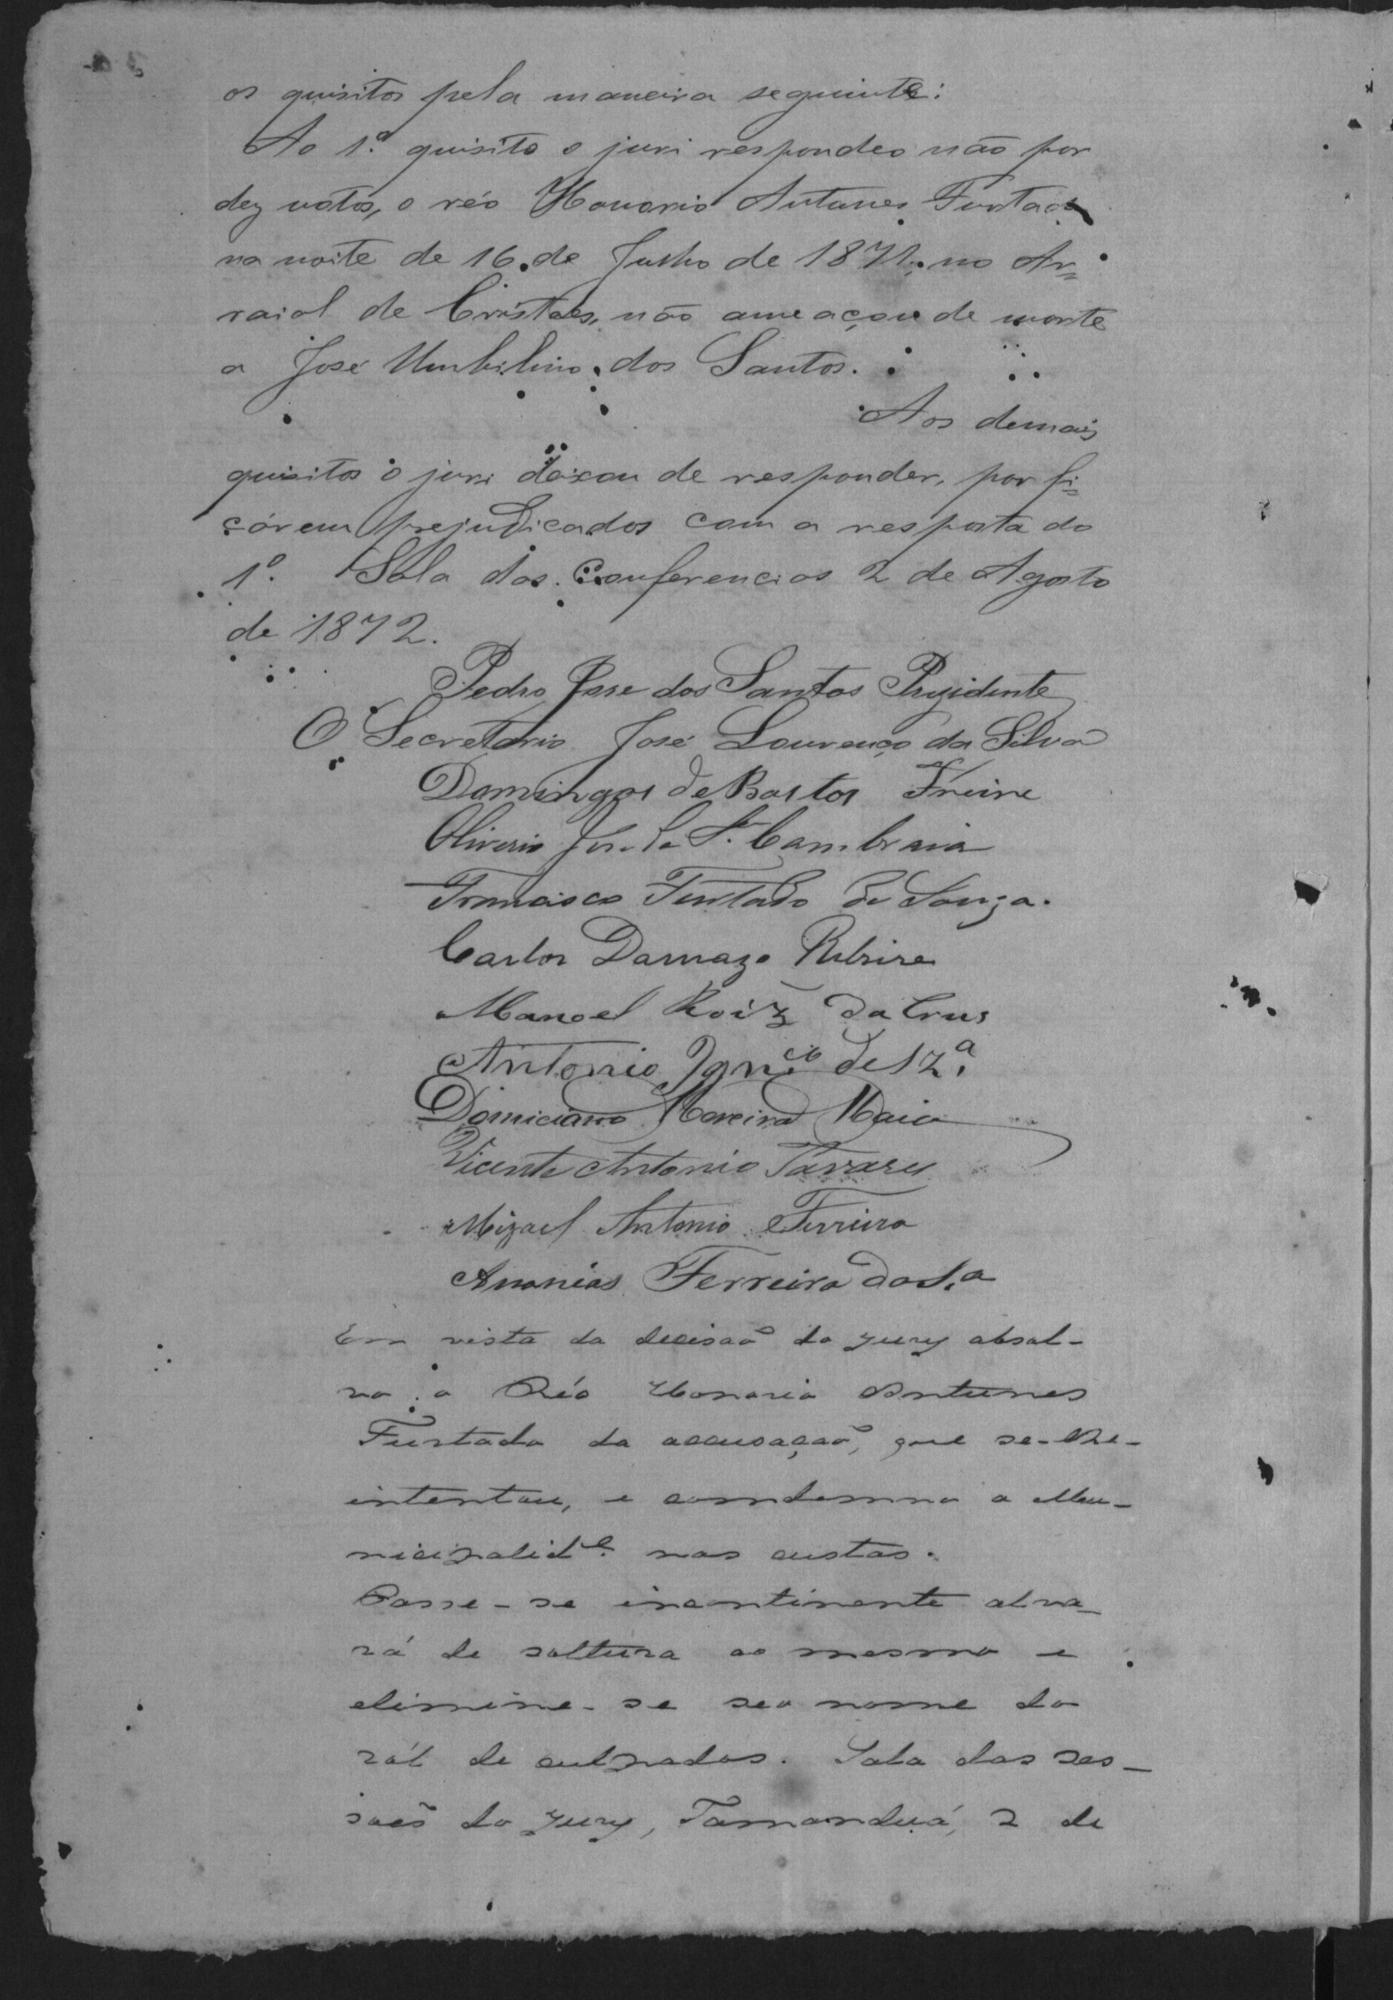 os quisitos pela maneira seguinte:
Ao 1.º quisito o juri respondeo não por
dez votos, o réo Honorio Antunes Furtado
na noite de 16 de Julho de 1871, no Ar=
raial de Cristaes, não ameaçou de morte
a José Umbilino dos Santos.
Aos demais
quisitos o juri deixou de responder, por fi=
cárem prejudicados com a resposta do
1º. Sala das Conferencias 2 de Agosto
de 1872.
Pedro Jose dos Santos Prezidente
O Secretario José Lourenço da Silva
Domingos de Bastos Freire
Oliverio José de S. Cambraia
Francisco Furtado de Souza.
Carlos Damazo Ribeiro
Manoel Roiz da Crus
Antonio Ign.co de Sz.ª
Domiciano Moreira Maia
Vicente Antonio Tavares
Mizael Antonio Ferreira
Ananias Ferreira da S.a
Em vista da decisaõ do Jury absol-
vo o Réo Honorio Antunes
Furtado da accusaçaõ, que se-lhe-
intentou, e condemno a Mu-
nicipalid.e nas custas.
Passe-se incontinente alva-
rá de soltura ao mesmo e
elimine-se seo nome do
ról de culpados. Sala das ses-
soẽs do Jury, Tamanduá, 2 de